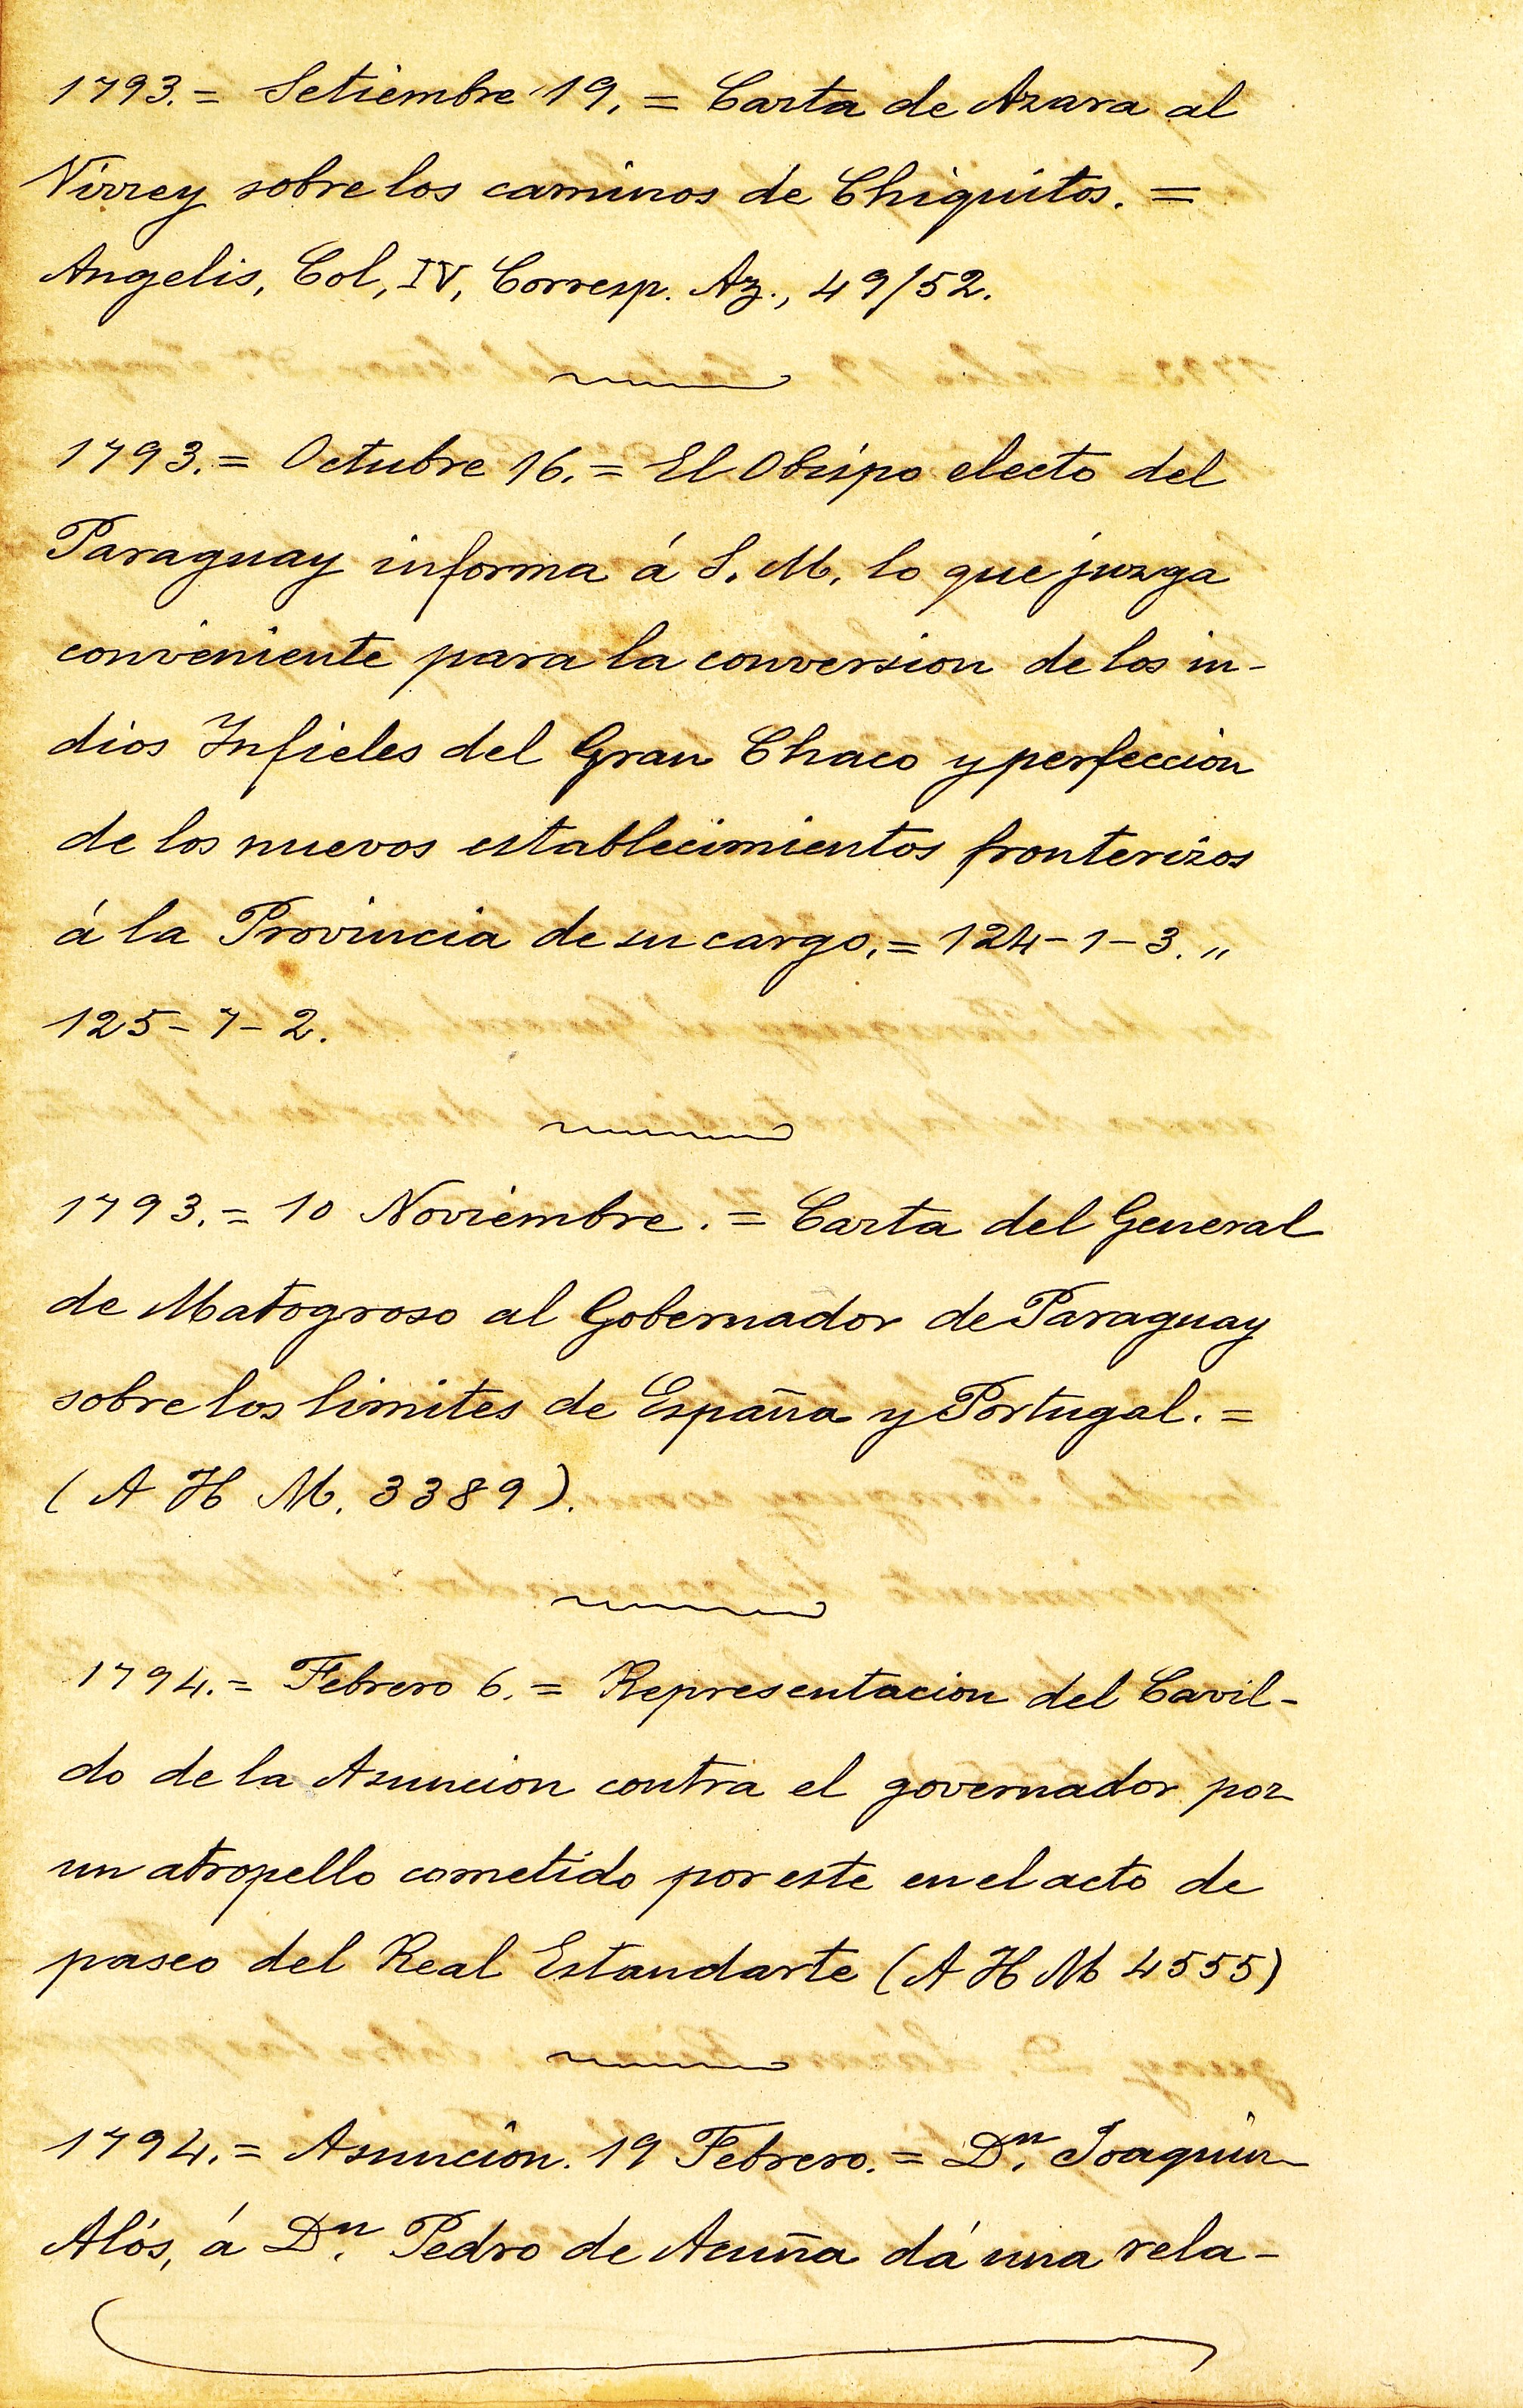 1793.= Setiembre 19. = Carta de Azara al
Virrey sobre los caminos de Chiquitos. =
Angelis, Col, IV, Corresp. Az., 49/52.
1793.= Octubre 16.= El Obispo electo del
Paraguay informa á S. M. lo que juzga
conveniente para la conversion de los in-
dios Infieles del Gran Chaco y perfeccion
de los nuevos establecimientos fronterizos
á la Provincia de su cargo.= 124-1-3. "
125-7-2.
1793.= 10 Noviembre. = Carta del General
de Matogroso al Gobernador de Paraguay
sobre los limites de España y Portugal. =
(A H M. 3389).
1794.= Febrero 6.= Representacion del Cavil-
do de la Asuncion contra el governador por
un atropello cometido por este en el acto de
paseo del Real Estandarte (A H M 4555)
1794.= Asuncion. 19 Febrero.= Dn. Joaquin
Alós, á Dn. Pedro de Acuña dá una rela-